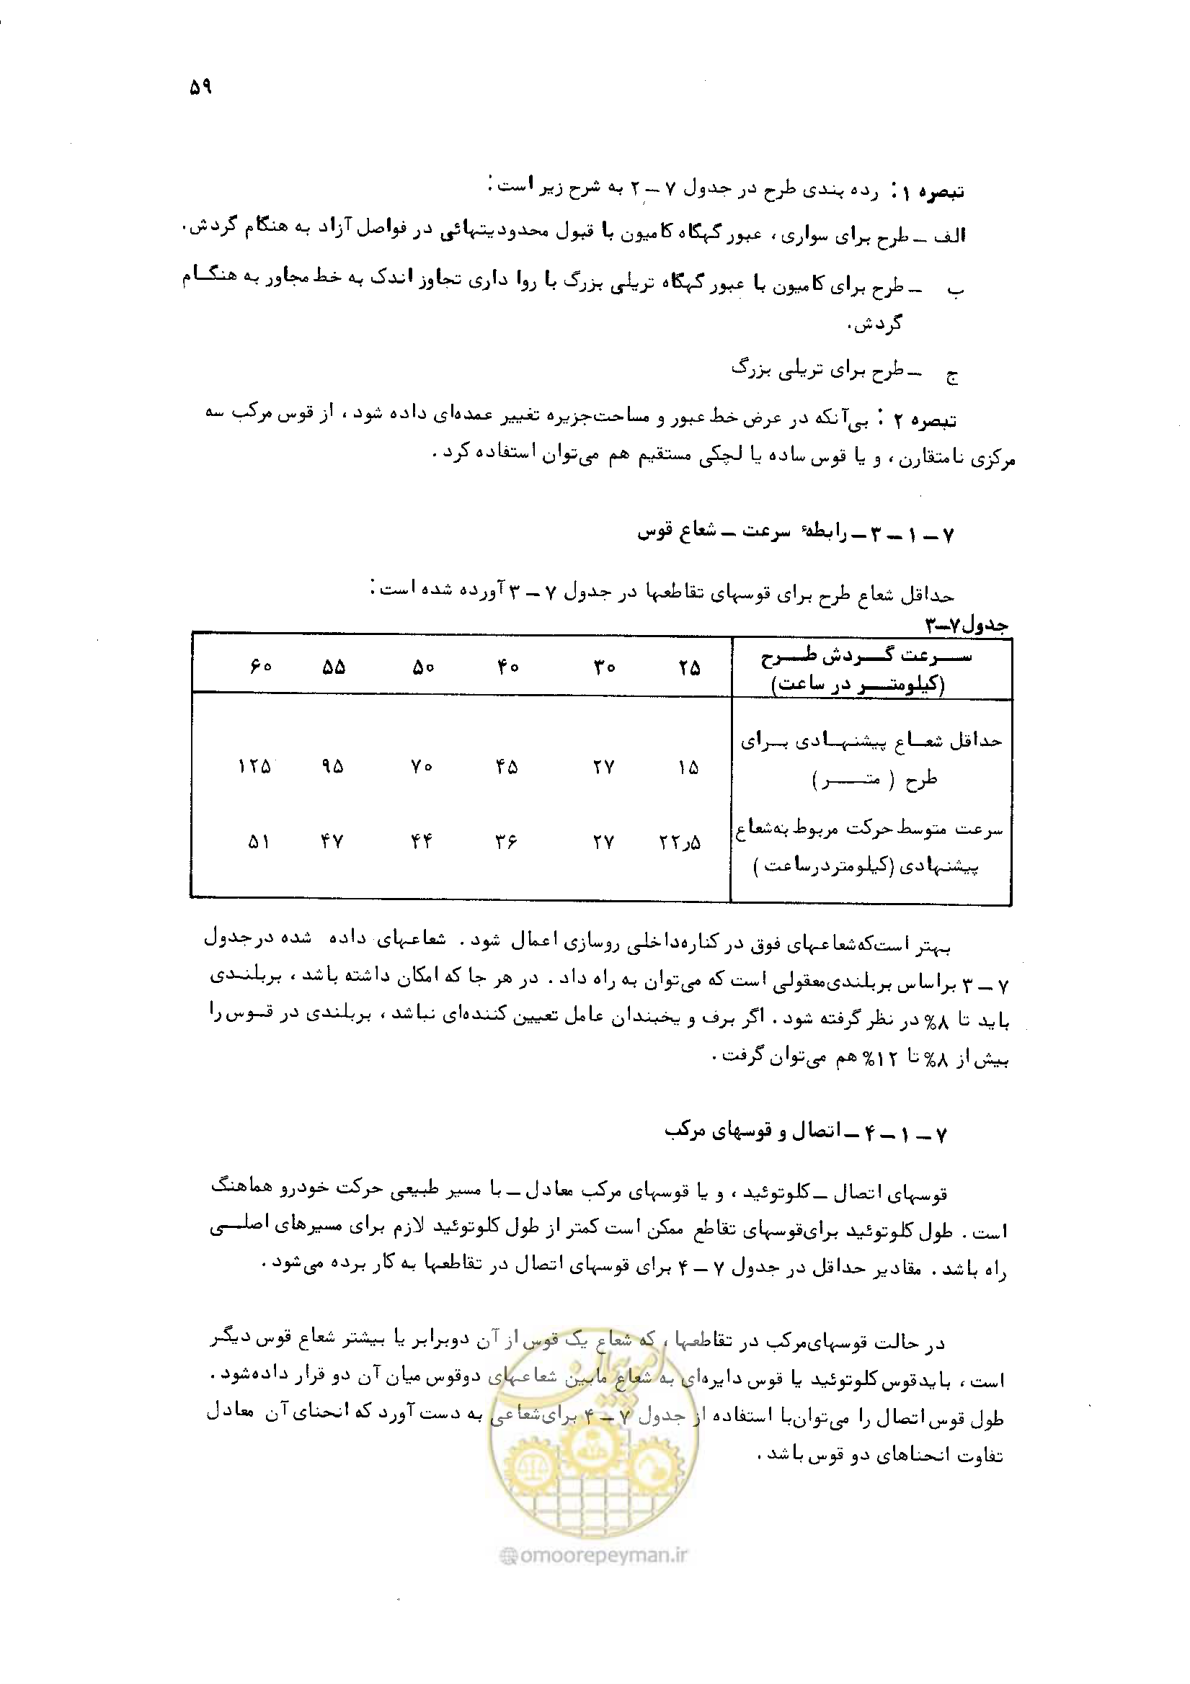 ۵۹
تبصره ۱: رده بندی طرح در جدول ۷ – ۲ به شرح زیر است:
الف – طرح برای سواری، عبور گهگاه کامیون با قبول محدودیتهائی در فواصل آزاد به هنگام گردش.
ب – طرح برای کامیون با عبور گهگاه تریلی بزرگ با روا داری تجاوز اندک به خط مجاور به هنگام
گردش.
ج – طرح برای تریلی بزرگ
تبصره ۲ : بی‌آنکه در عرض خط عبور و مساحت جزیره تغییر عمده‌ای داده شود، از قوس مرکب سه
مرکزی نامتقارن، و یا قوس ساده یا لچکی مستقیم هم می‌توان استفاده کرد.
۷ – ۱ – ۳ – رابطهٔ سرعت – شعاع قوس
حداقل شعاع طرح برای قوسهای تقاطعها در جدول ۷ – ۳ آورده شده است:
جدول ۷–۳
سرعت گردش طرح
(کیلومتر در ساعت) ۲۵ ۳۰ ۴۰ ۵۰ ۵۵ ۶۰
حداقل شعاع پیشنهادی برای
طرح ( متر ) ۱۵ ۲۷ ۴۵ ۷۰ ۹۵ ۱۲۵
سرعت متوسط حرکت مربوط به شعاع
پیشنهادی (کیلومتر در ساعت ) ۲۲٫۵ ۲۷ ۳۶ ۴۴ ۴۷ ۵۱
بهتر است که شعاعهای فوق در کناره داخلی روسازی اعمال شود. شعاعهای داده شده در جدول
۷ – ۳ براساس بربلندی معقولی است که می‌توان به راه داد. در هر جا که امکان داشته باشد، بربلندی
باید تا ۸% در نظر گرفته شود. اگر برف و یخبندان عامل تعیین کننده‌ای نباشد، بربلندی در قوس را
بیش از ۸% تا ۱۲% هم می‌توان گرفت.
۷ – ۱ – ۴ – اتصال و قوسهای مرکب
قوسهای اتصال – کلوتوئید، و یا قوسهای مرکب معادل – با مسیر طبیعی حرکت خودرو هماهنگ
است. طول کلوتوئید برای قوسهای تقاطع ممکن است کمتر از طول کلوتوئید لازم برای مسیرهای اصلی
راه باشد. مقادیر حداقل در جدول ۷ – ۴ برای قوسهای اتصال در تقاطعها به کار برده می‌شود.
در حالت قوسهای مرکب در تقاطعها، که شعاع یک قوس از آن دوبرابر یا بیشتر شعاع قوس دیگر
است، باید قوس کلوتوئید یا قوس دایره‌ای به شعاع مابین شعاعهای دو قوس میان آن دو قرار داده شود.
طول قوس اتصال را می‌توان با استفاده از جدول ۷ – ۴ برای شعاعی به دست آورد که انحنای آن معادل
تفاوت انحناهای دو قوس باشد.
امور پیمان
@omoorepeyman.ir